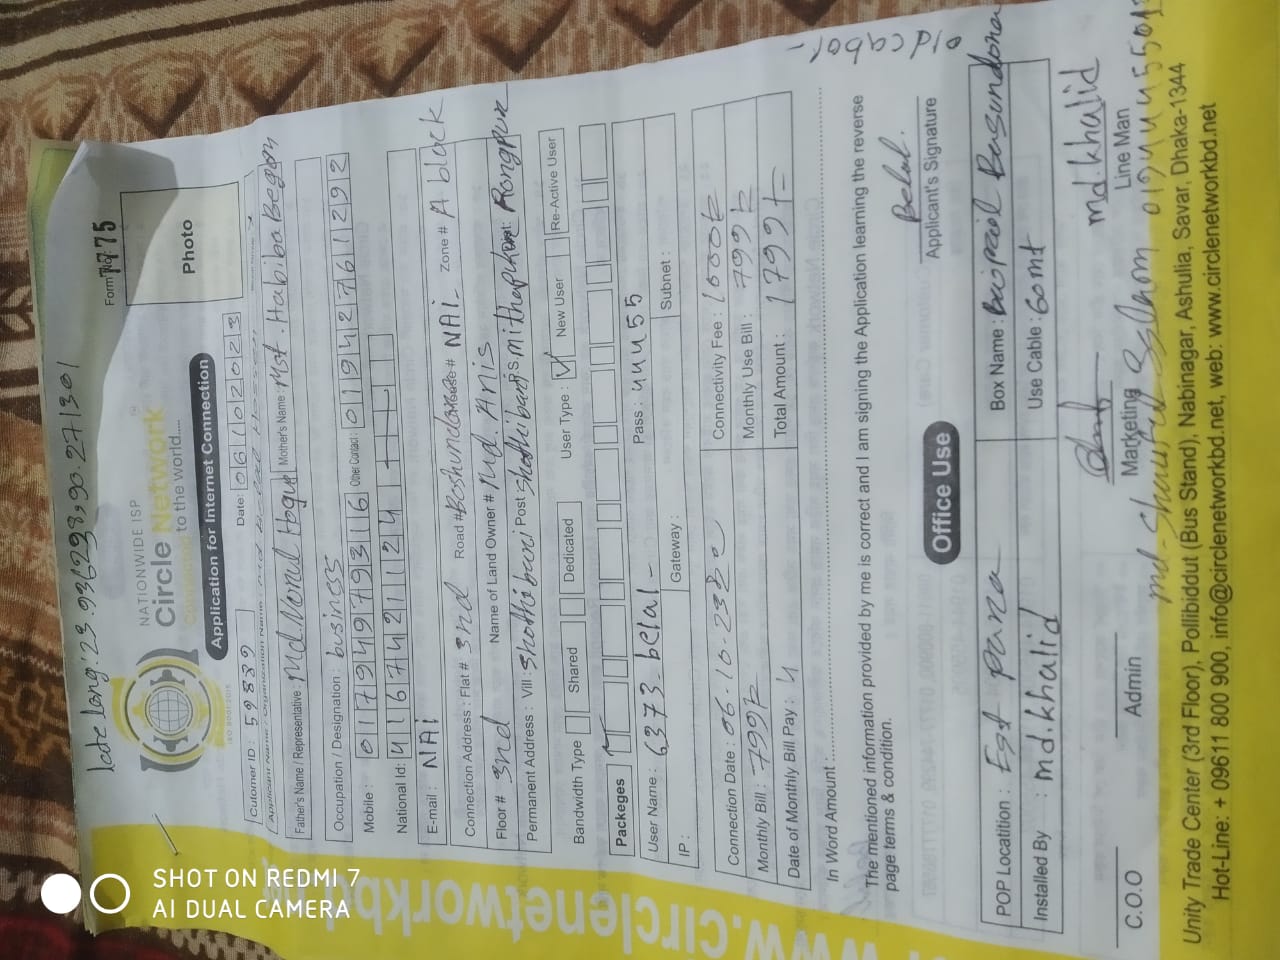 late long:23.936298,90.271301
NATIONWIDE ISP
Circle Network
to the world.....
Form No: 7775
Photo
Application for Internet Connection
Cutomer ID : 59839 Date: 06102023
Applicant Name / Organization Name : md Belal Hossen
Father's Name / Representative : Md. Norul Hoque Mother's Name : Mst. Habiba Begom
Occupation / Designation : business
Mobile : 01794979316 Other Contact : 01194276 1292
National Id: 4167421124
E-mail : NAi
Connection Address : Flat # 3nd Road # Boshundora House # NAi- Zone # A block
Floor # 3nd Name of Land Owner # Md. Anis
Permanent Address : Vill : Shothibari Post Shothibari P.S. mithapukur Dist: Rongpur
Bandwidth Type Shared Dedicated User Type : New User Re-Active User
Packeges
User Name : 6373-belal- Pass : 444455
IP: Gateway : Subnet :
Connection Date : 06-10-2323 Connectivity Fee : 1000৳
Monthly Bill : 799৳ Monthly Use Bill : 799৳
Date of Monthly Bill Pay : 4 Total Amount : 1799৳
old cabol-
In Word Amount :
The mentioned information provided by me is correct and I am signing the Application learning the reverse
page terms & condition.
Belal.
Applicant's Signature
Office Use
POP Locatition : Est para Box Name : Baipail Basundora
Installed By : md.khalid Use Cable : 60mt
md.khalid
C.O.O Admin Marketing Line Man
Unity Trade Center (3rd Floor), Pollibiddut (Bus Stand), Nabinagar, Ashulia, Savar, Dhaka-1344
Hot-Line: + 09611 800 900, info@circlenetworkbd.net, web: www.circlenetworkbd.net
www.circlenetworkbd
SHOT ON REDMI 7
AI DUAL CAMERA